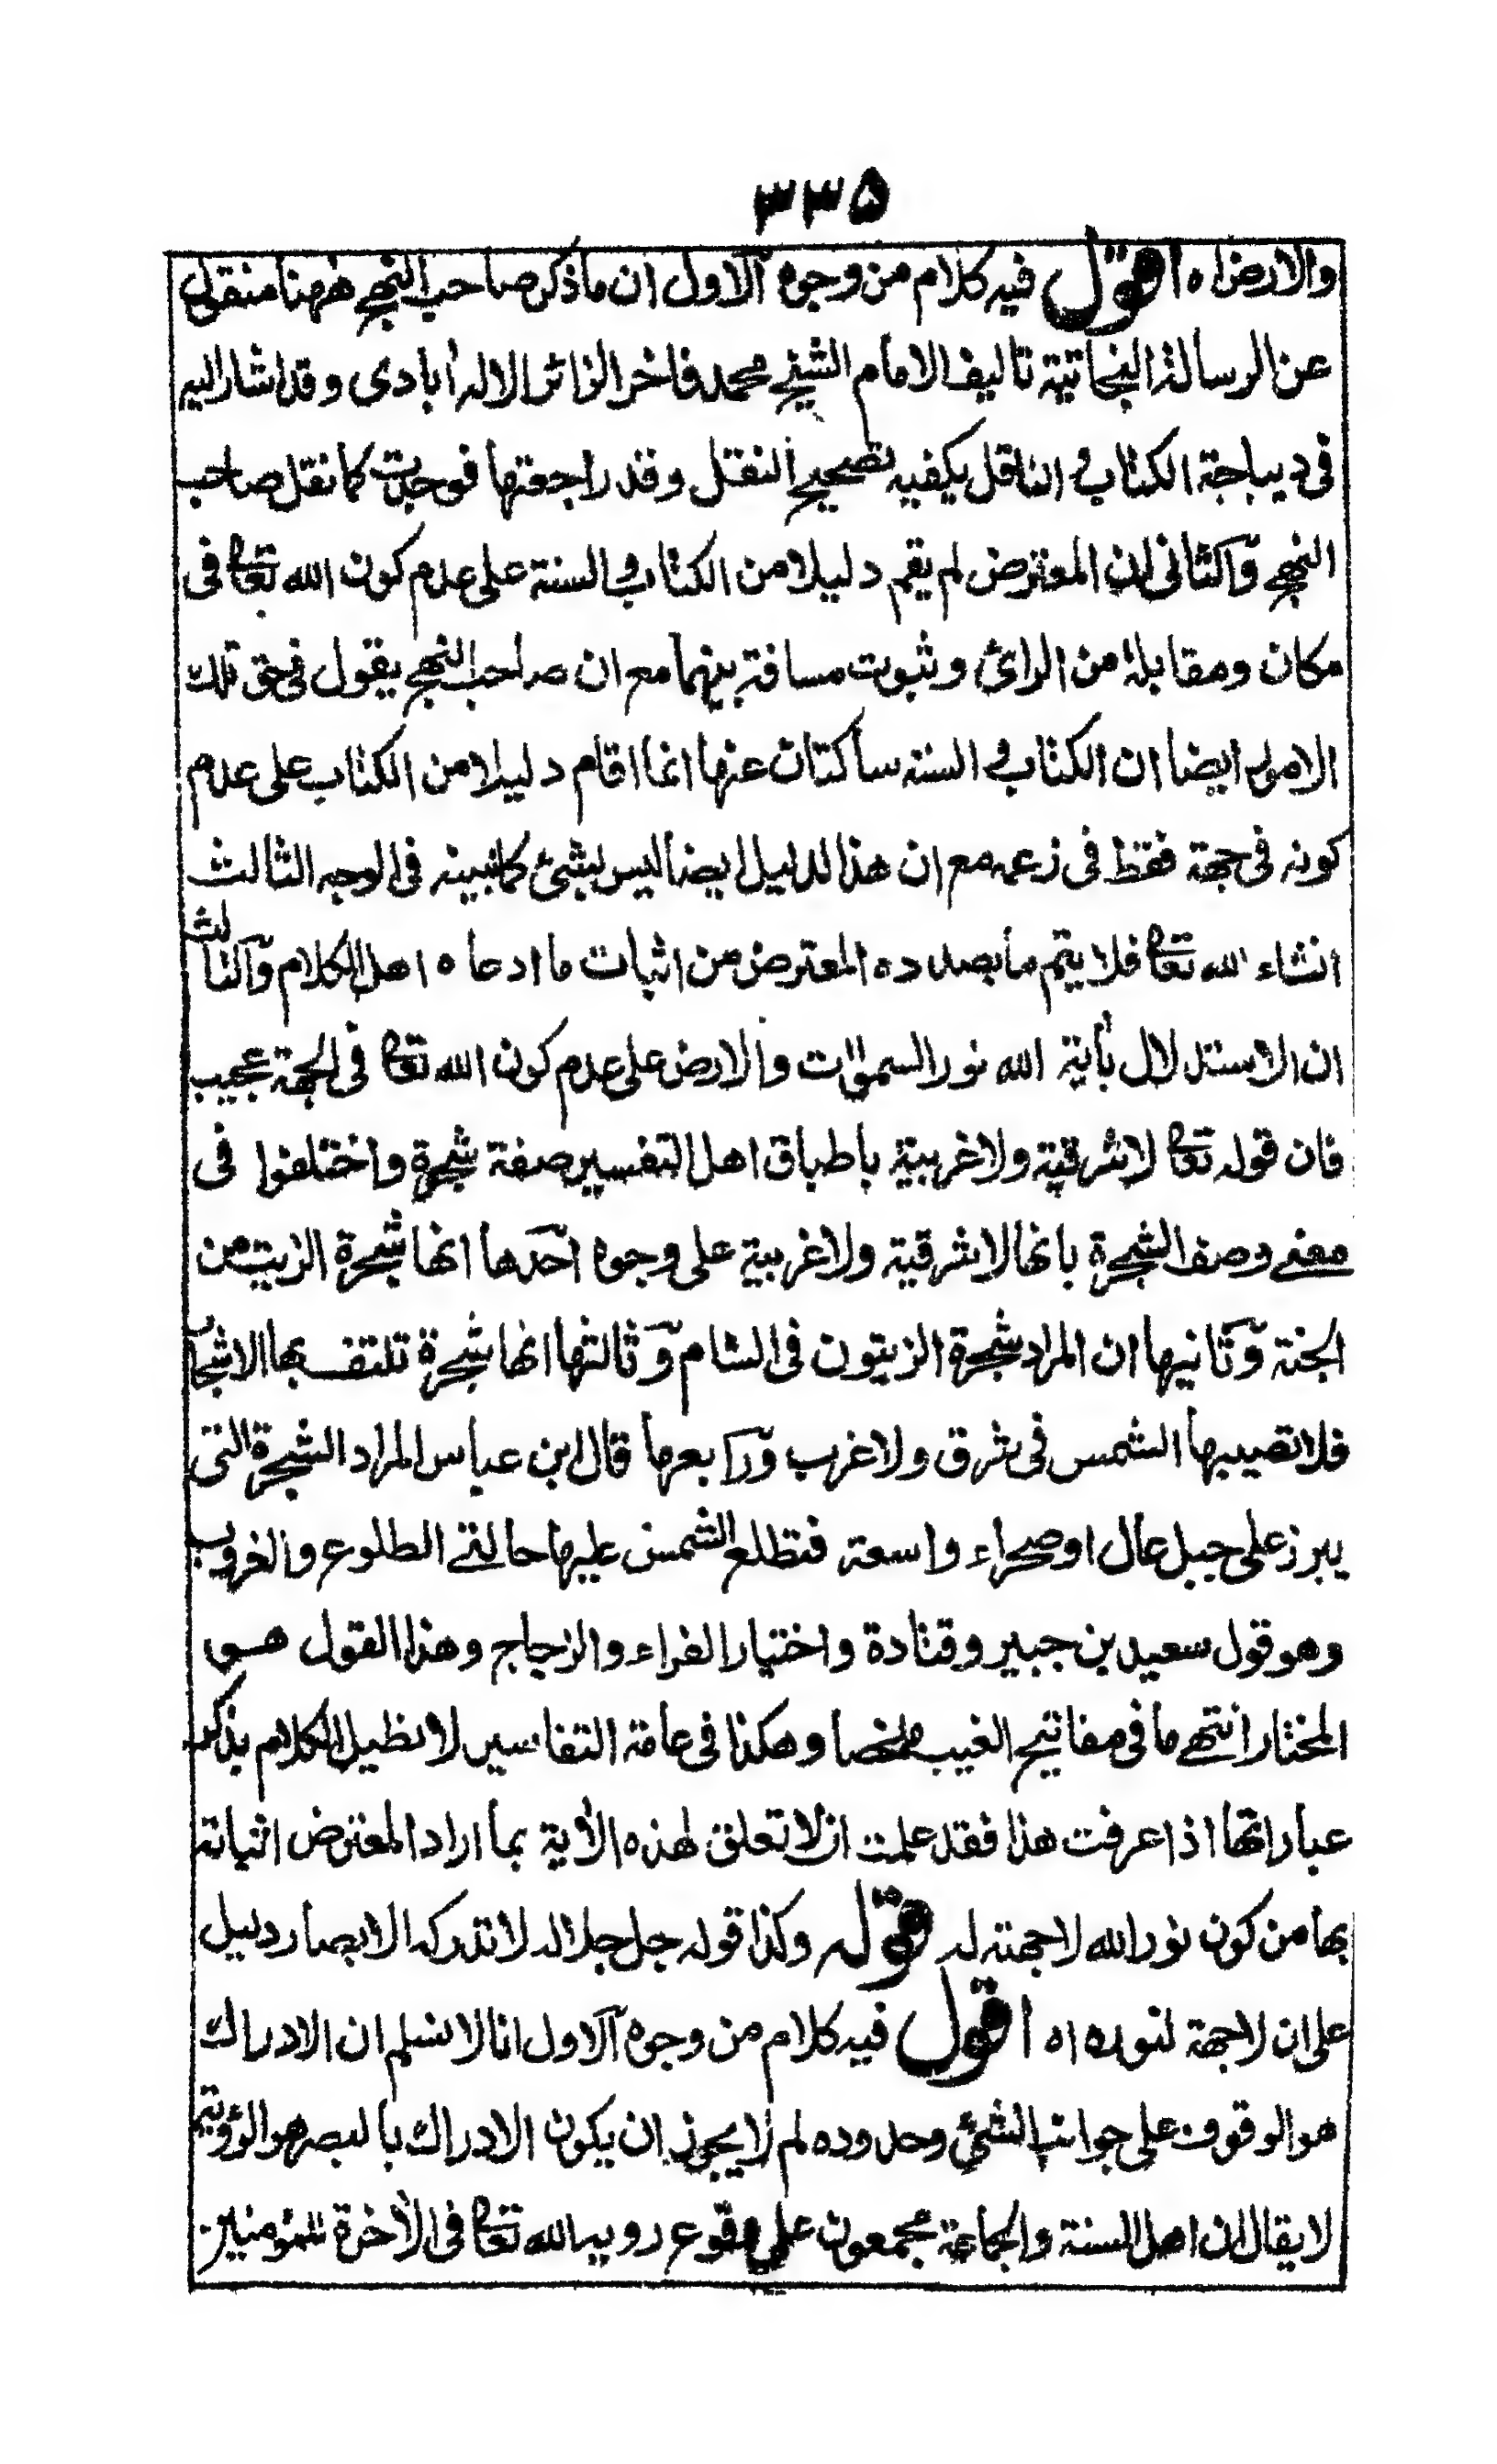 ٣٣۵
والارض اه اقول فيه كلام من وجوه الاول ان ما ذكر صاحب النهج ههنا منقول
عن الرسالة النجاتية تاليف الامام الشيخ محمد فاخر الزائر الاله أبادى وقد اشار اليه
فى ديباجة الكتاب و الناقل يكفيه تصحيح النقل وقد راجعتها فوجدت كما نقل صاحب
النهج والثانى ان المعترض لم يقم دليلا من الكتاب و السنة على عدم كون الله تعالى فى
مكان ومقابلة من الرائ وثبوت مسافة بينهما مع ان صاحب النهج يقول فى حق تلك
الامور ايضا ان الكتاب و السنة ساكتان عنها انما اقام دليلا من الكتاب على عدم
كونه فى جهة فقط فى زعمه مع ان هذا الدليل ايضا ليس بشئ كما نبينه فى الوجه الثالث
انشاء الله تعالى فلا يتم ما بصدده المعترض من اثبات ما ادعاه اهل الكلام والثالث
ان الاستدلال بأية الله نور السموات والارض على عدم كون الله تعالى فى الجهة عجيب
فان قوله تعالى لا شرقية ولا غربية باطباق اهل التفسير صفة شجرة واختلفوا فى
معنى وصف الشجرة بانها لا شرقية ولا غربية على وجوه احدها انها شجرة الزيت من
الجنة وثانيها ان المراد شجرة الزيتون فى الشام وثالثها انها شجرة تلتف بها الاشجار
فلا تصيبها الشمس فى شرق ولا غرب ورابعها قال ابن عباس المراد الشجرة التى
يبرز على جبل عال او صحراء واسعة فتطلع الشمس عليها حالتى الطلوع والغروب
وهو قول سعيد بن جبير وقتادة واختيار الفراء والزجاج وهذا القول هو
المختار انتهى ما فى مفاتيح الغيب ملخصا وهكذا فى عامة التفاسير لا نطيل الكلام بذكر
عباراتها اذا عرفت هذا فقد علمت ان لا تعلق لهذه الأية بما اراد المعترض اثباته
بها من كون نور الله لا جهة له قوله وكذا قوله جل جلاله لا تدركه الابصار دليل
على ان لا جهة لنوره اه اقول فيه كلام من وجوه الاول انا لا نسلم ان الادراك
هو الوقوف على جوانب الشئ وحدوده لم لا يجوز ان يكون الادراك بالبصر هو الرؤية
لا يقال ان اهل السنة والجماعة مجمعون على وقوع روية الله تعالى فى الأخرة للمؤمنين